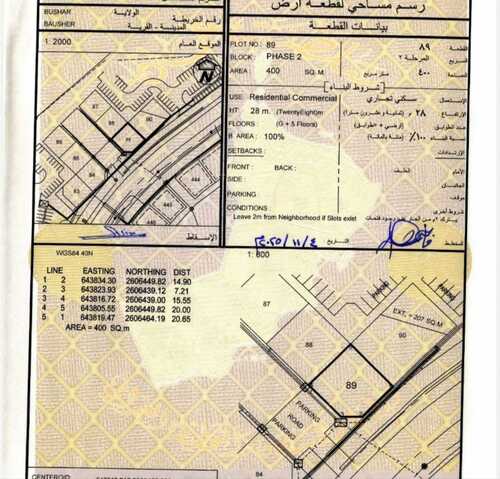 رسم مساحي لقطعة أرض
BUSHAR
الولاية
رقم الخريطة
BAUSHER
المدينة - القرية
بيانات القطعة
1: 2000
الموقع العام
PLOT NO : 89
القطعة ٨٩
BLOCK : PHASE 2
المرحلة ٢
AREA : 400 SQ. M
٤٠٠ متر مربع المساحة
شروط البناء
USE Residential Commercial
سكني تجاري الاستعمال
HT: 28 m. (TwentyEight)m
الارتفاع ٢٨ م (ثمانية وعشرون مترا)
FLOORS (G + 5 Floors)
عدد الطوابق
B AREA : 100%
٪١٠٠ (مئة بالمائة)
SETBACKS :
الارتدادات
FRONT : BACK :
الأمام الخلف
SIDE :
الجانبين
PARKING
موقف
CONDITIONS
شروط أخرى
Leave 2m from Neighborhood if Slots exist
الإسقاط
٢٠٢٥/١١/٤
التاريخ
المخطط
WGS84 40N
1: 600
LINE EASTING NORTHING DIST
1 2 643834.30 2606449.82 14.90
2 3 643823.93 2606439.12 7.21
3 4 643816.72 2606439.00 15.55
4 5 643805.55 2606449.82 20.00
5 1 643819.47 2606464.19 20.65
AREA = 400 SQ.m
87
88
89
90
EXT. = 207 SQ.M
PARKING
PARKING
ROAD
PARKING
84
CENTEROID